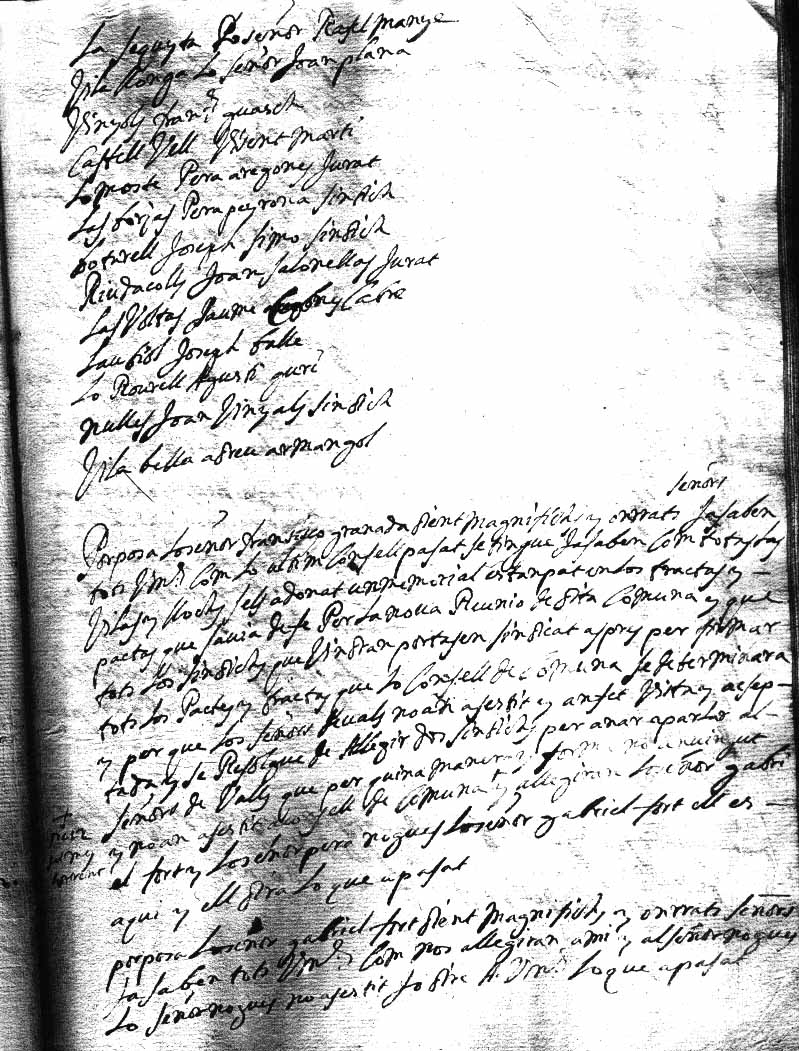 La sequyta Lo señor Rafel manye
Vila llonga Lo señor Joan plana
Vinyols guasch
Castell Vell Visent marti
Lo moste Pera aregones Jurat
Las borjas Pera peyrona sindich
botarell Joseph simo sindich
Riudacolls Joan salonellas Jurat
Las Voltas Jaume Cabre
Joseph balle
Lo Rourell Agusti
nulles Joan Vinyals sindich
Vila bella armangol
señors
Porposa Lo señor Fransisco granada dient magnifichs y onrrats Jasaben
tots Vms Com Lo ultim Consell pasat se tingue Jasaben Com totas las
Vilas y llochs sels adonat un memorial estanpat en los tractas y
pactas que savia de fe Per La noua Reunio de dita Comuna y que
tots Los sindichs que Vindran portasen sindicat aspres per firmar
tots Los Pactes y tractas que Lo Consell de Comuna se determinara
y per que Los señors de uals no an asestit y an fet Vista y asep-
tada y se Resolgue de Allegir dos sindichs per anar a parlar al-
señors de Valls que per quina manera y forma no an uingut
y no an asestit al Consell de Comuna y allegiran Lo señor gabri
el fort y Lo señor pera nogues Lo señor gabriel fort ell es
aqui y ell dira Lo que a pasat
porposa Lo señor gabriel fort dient magnifichs y onrrats señors
Ja saben tots Vms Com nos allegiran a mi y al señor nogues
Lo señor nogues no asestit Jo dire A Vms Lo que a pasat